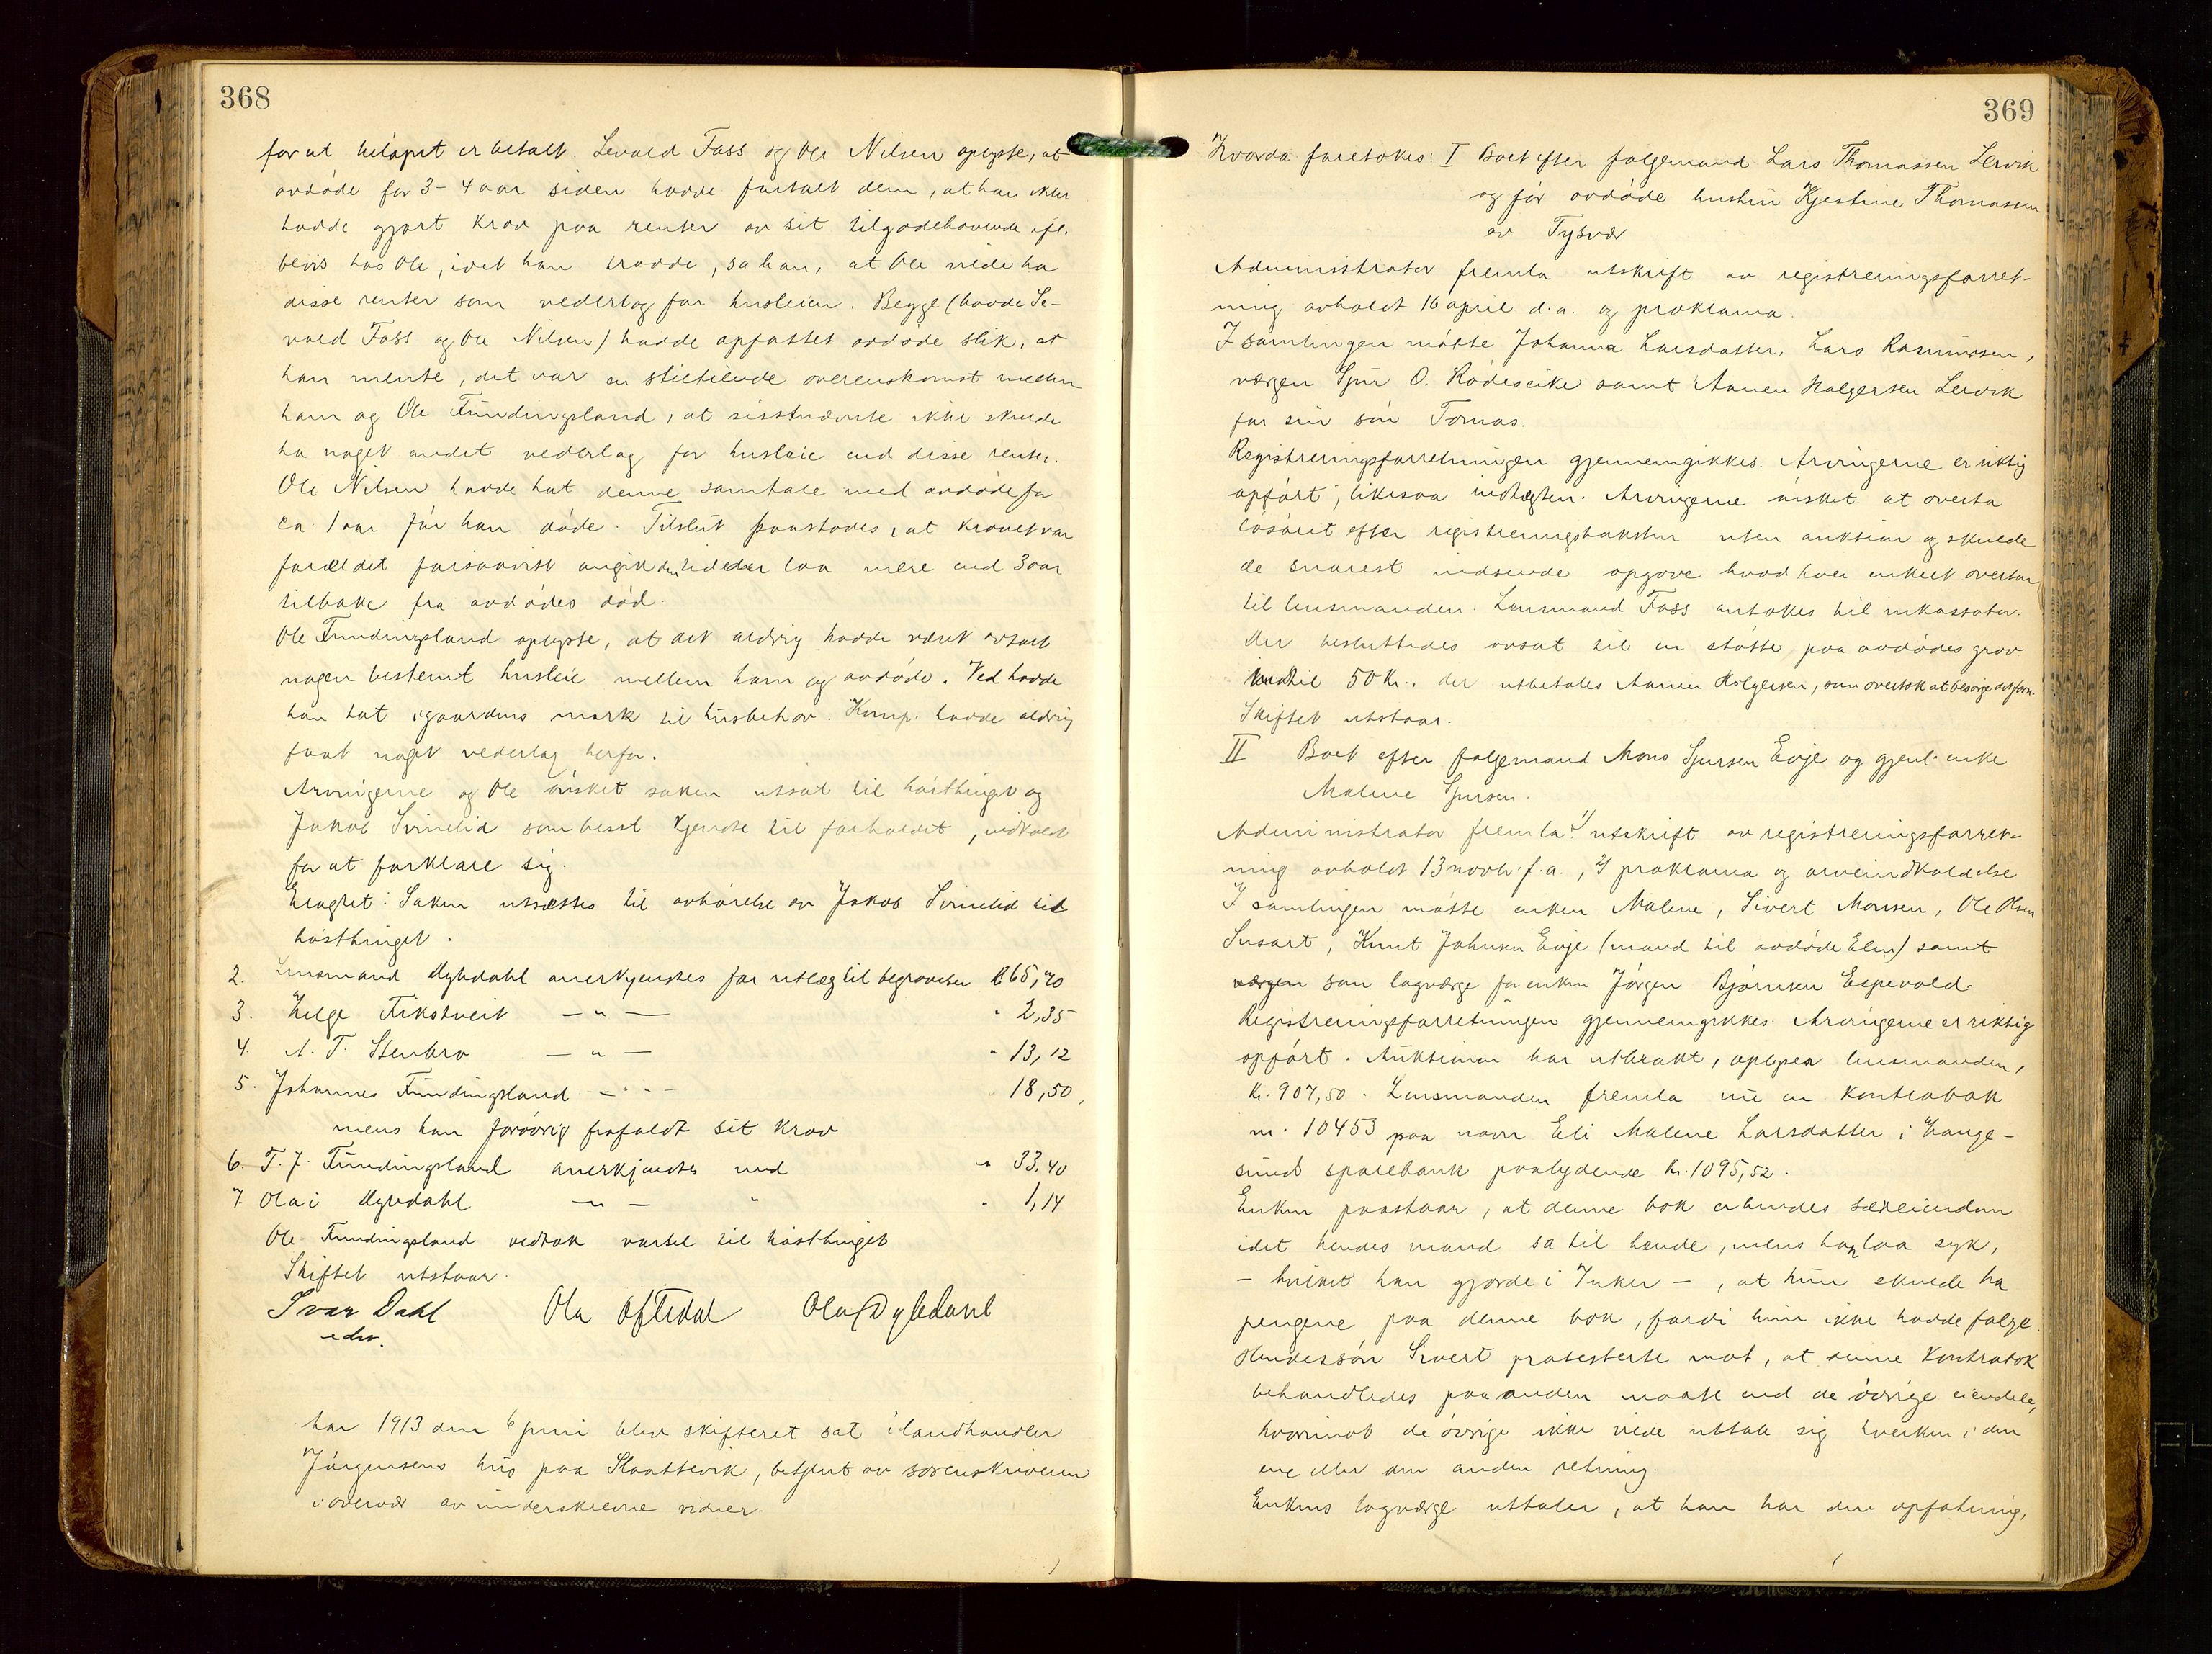 368
for at beløpet er betalt. Sevald Foss og Ole Nilsen oplyste, at
avdøde for 3-4 aar siden hadde fortalt dem, at han ikke
hadde gjort krav paa renter av sit tilgodehavende efl.
bevis hos Ole, idet han trodde, sa han, at Ole vilde ha
disse renter som vederlag for husleien. Begge (baade Se-
vald Foss og Ole Nilsen) hadde opfattet avdøde slik, at
han mente, det var en stiltiende overenskomst mellem
ham og Ole Fundingsland, at sisstnævnte ikke skulde
ha noget andet vederlag for husleie end disse renter.
Ole Nilsen hadde hat denne samtale med avdøde for
ca. 1 aar før han døde. Tilslut paastodes, at kravet var
forældet forsaavidt angik den tid der laa mere end 3 aar
tilbake fra avdødes død.
Ole Fundingsland oplyste, at det aldrig hadde været avtalt
nogen bestemt husleie mellem ham og avdøde. Ved hadde
han hat i gaardens mark til husbehov. Komp. hadde aldrig
faat noget vederlag herfor.
Arvingerne og Ole ønsket saken utsat til høstthinget og
Jakob Svinelid som besst kjendte til forholdet, indkaldt
for at forklare sig.
Eragtet: Saken utsættes til avhørelse av Jakob Svinelid til
høstthinget.
2. Lensmand Dybdahl anerkjendtes for utlæg til begravelsen 165,70
3. Helge Fikstveit — " — " 2,35
4. A. T. Stenbro — " — " 13,12
5. Johannes Fundingsland — " — " 18,50,
mens han forøvrig frafaldt sit krav
6. T. J. Fundingsland anerkjendtes med " 33,40
7. Olai Dybdahl — " — " " 1,14
Ole Fundingsland vedtok varsel til høstthinget
Skiftet utstaar.
Ivar Dahl Ola Oftedal Ola Dybdahl
edsv.
Aar 1913 den 6 juni blev skifteret sat i landhandler
Jørgensens hus paa Slaattevik, betjent av sorenskriveren
i overvær av underskrevne vidner.
369
Hvorda foretokes: I Boet efter følgemand Lars Thomassen Lervik
og før avdøde hustru Kjestine Thomassen
av Tysvær
Administrator fremla utskrift av registreringsforret-
ning avholdt 16 april d.a. og proklama.
I samlingen møtte Johanna Larsdatter, Lars Rasmussen,
værgen Sjur O. Rødeseike samt Aanen Holgersen Lervik
for sin søn Tomas.
Registreringsforretningen gjennemgikkes. Arvingerne er riktig
opført, likesaa indtægten. Arvingerne ønsket at overta
løsøret efter registreringstaksten uten auktion og skulde
de snarest indsende opgave hvad hver enkelt overtar
til lensmanden. Lensmand Foss antokes til inkassator.
Der besluttedes avsat til en støtte paa avdødes grav
indtil 50 Kr., der utbetales Aanen Holgersen, som overtok at besørge det forn.
Skiftet utstaar.
II Boet efter følgemand Mons Sjursen Evje og gjenl. enke
Malene Sjursen.
Administrator fremla 1/ utskrift av registreringsforret-
ning avholdt 13 novbr. f.a., 2/ proklama og arveindkaldelse
I samlingen møtte enken Malene, Sivert Monsen, Ole Olsen
Susort, Knut Johnsen Evje (mand til avdøde Elen) samt
værgen som lagværge for enken Jørgen Bjørnsen Espevold.
Registreringsforretningen gjennemgikkes. Arvingerne er riktig
opført. Auktionen har utbrakt, oplyser lensmanden,
Kr. 907,50. Lensmanden fremla nu en kontrabok
nr. 10453 paa navn Eli Malene Larsdatter i Hauge-
sunds sparebank paalydende Kr. 1095,52.
Enken paastaar, at denne bok er hendes særeiendom
idet hendes mand sa til hende, mens han laa syk,
– hvilket han gjorde i 7 uker –, at hun skulde ha
pengene paa denne bok, fordi hun ikke hadde følge.
Hendes søn Sivert protesterte mot, at denne kontrabok
behandledes paa anden maate end de øvrige eiendele,
hvorimot de øvrige ikke vilde uttale sig hverken i den
ene eller den anden retning.
Enkens lagværge uttaler, at han har den opfatning,